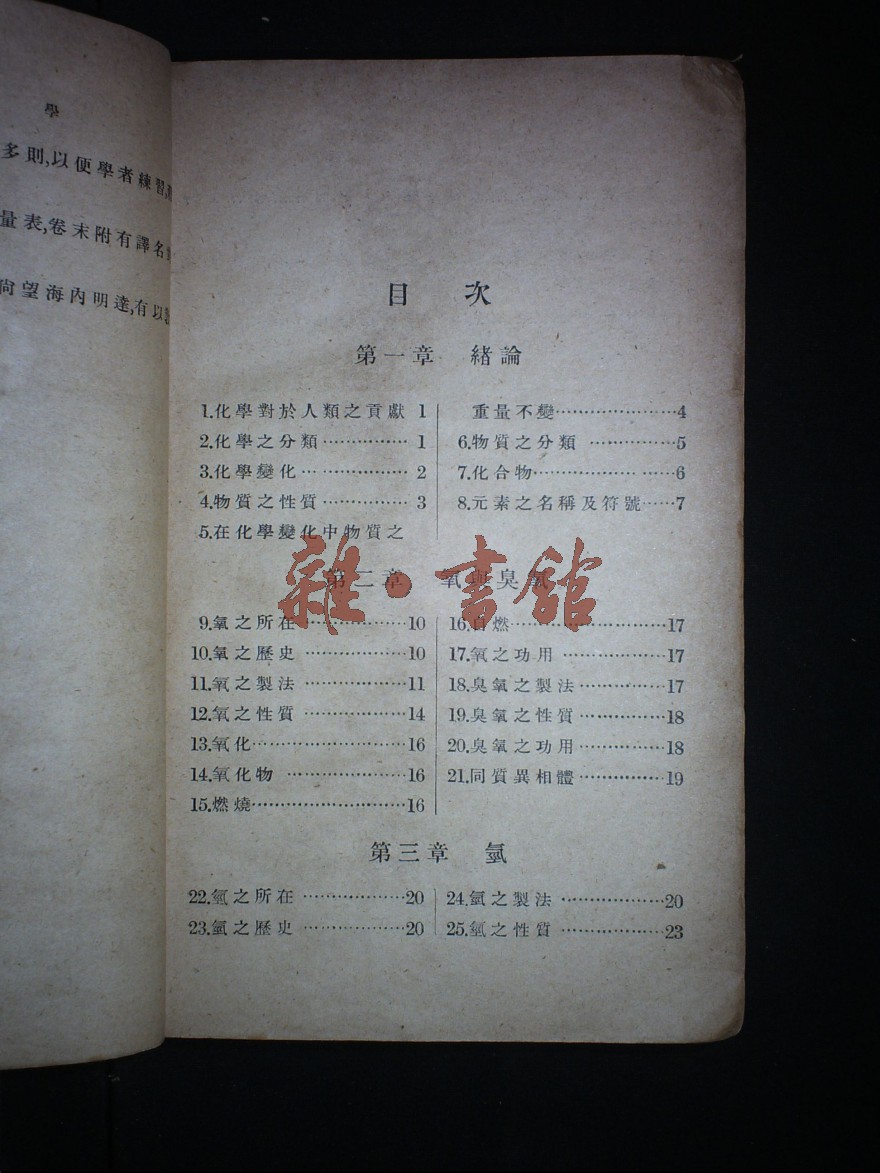 學
多則,以便學者練習,
量表,卷末附有譯名
尙望海內明達,有以
目 次
第一章 緒論
1.化學對於人類之貢獻 1
2.化學之分類 …………… 1
3.化學變化 … …………… 2
4.物質之性質 …………… 3
5.在化學變化中物質之
重量不變…………………4
6.物質之分類 ……………5
7.化合物……………… ……6
8.元素之名稱及符號……7
第二章 氧與臭氧
9.氧之所在 ………………10
10.氧之歷史 ………………10
11.氧之製法 ………………11
12.氧之性質 ………………14
13.氧化………………………16
14.氧化物 …………………16
15.燃燒………………………16
16.自燃………………………17
17.氧之功用 ………………17
18.臭氧之製法……………17
19.臭氧之性質……………18
20.臭氧之功用……………18
21.同質異相體……………19
第三章 氫
22.氫之所在 ………………20
23.氫之歷史 ………………20
24.氫之製法 ………………20
25.氫之性質 ………………23
雜·書館